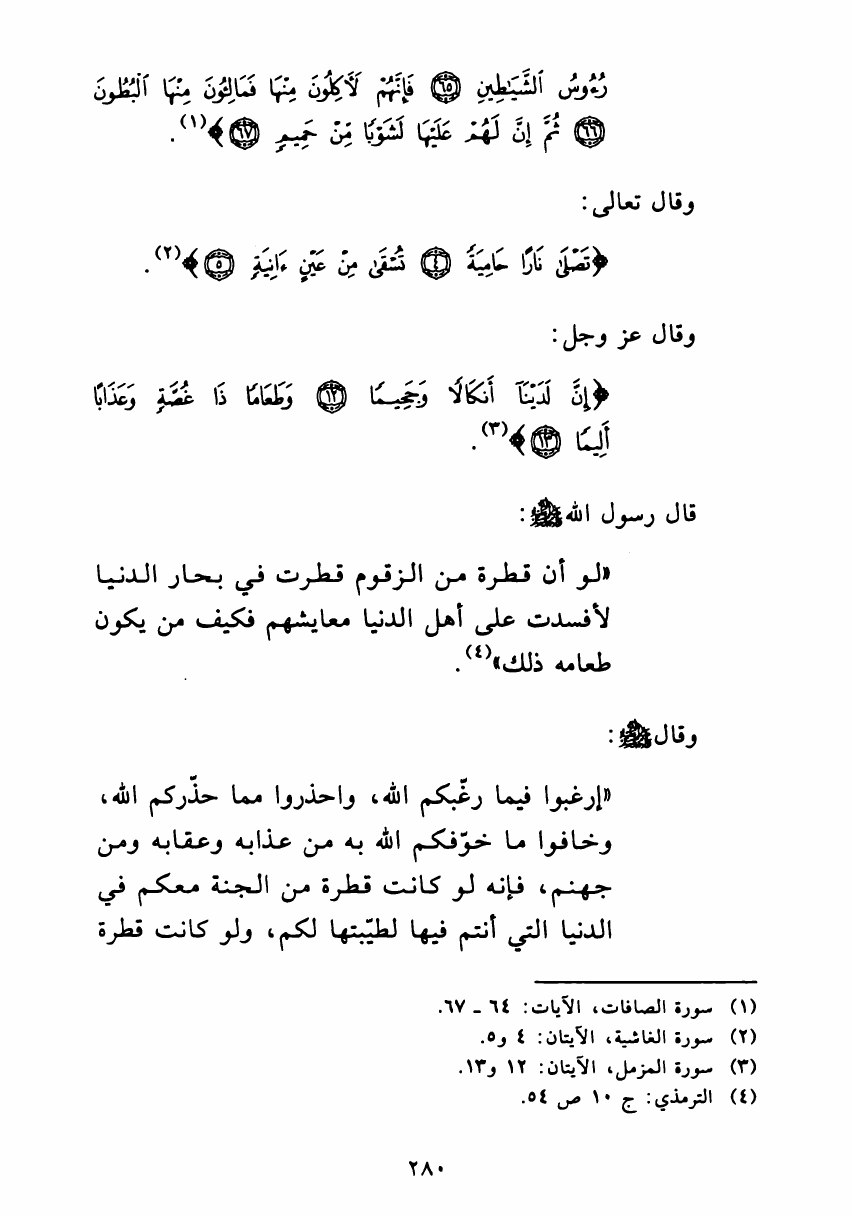 رُءُوسُ ٱلشَّيَٰطِينِ ﴿٦٥﴾ فَإِنَّهُمْ لَأَكِلُونَ مِنْهَا فَمَالِـُٔونَ مِنْهَا ٱلْبُطُونَ
﴿٦٦﴾ ثُمَّ إِنَّ لَهُمْ عَلَيْهَا لَشَوْبًا مِّنْ حَمِيمٍ ﴿٦٧﴾﴾(١).
وقال تعالى:
﴿تَصْلَىٰ نَارًا حَامِيَةً ﴿٤﴾ تُسْقَىٰ مِنْ عَيْنٍ ءَانِيَةٍ ﴿٥﴾﴾(٢).
وقال عز وجل:
﴿إِنَّ لَدَيْنَآ أَنكَالًا وَجَحِيمًا ﴿١٢﴾ وَطَعَامًا ذَا غُصَّةٍ وَعَذَابًا
أَلِيمًا ﴿١٣﴾﴾(٣).
قال رسول الله ﷺ:
«لو أن قطرة من الزقوم قطرت في بحار الدنيا
لأفسدت على أهل الدنيا معايشهم فكيف من يكون
طعامه ذلك»(٤).
وقال ﷺ:
«إرغبوا فيما رغّبكم الله، واحذروا مما حذّركم الله،
وخافوا ما خوّفكم الله به من عذابه وعقابه ومن
جهنم، فإنه لو كانت قطرة من الجنة معكم في
الدنيا التي أنتم فيها لطيّبتها لكم، ولو كانت قطرة
(١) سورة الصافات، الآيات: ٦٤ ـ ٦٧.
(٢) سورة الغاشية، الآيتان: ٤ و٥.
(٣) سورة المزمل، الآيتان: ١٢ و١٣.
(٤) الترمذي: ج ١٠ ص ٥٤.
٢٨٠